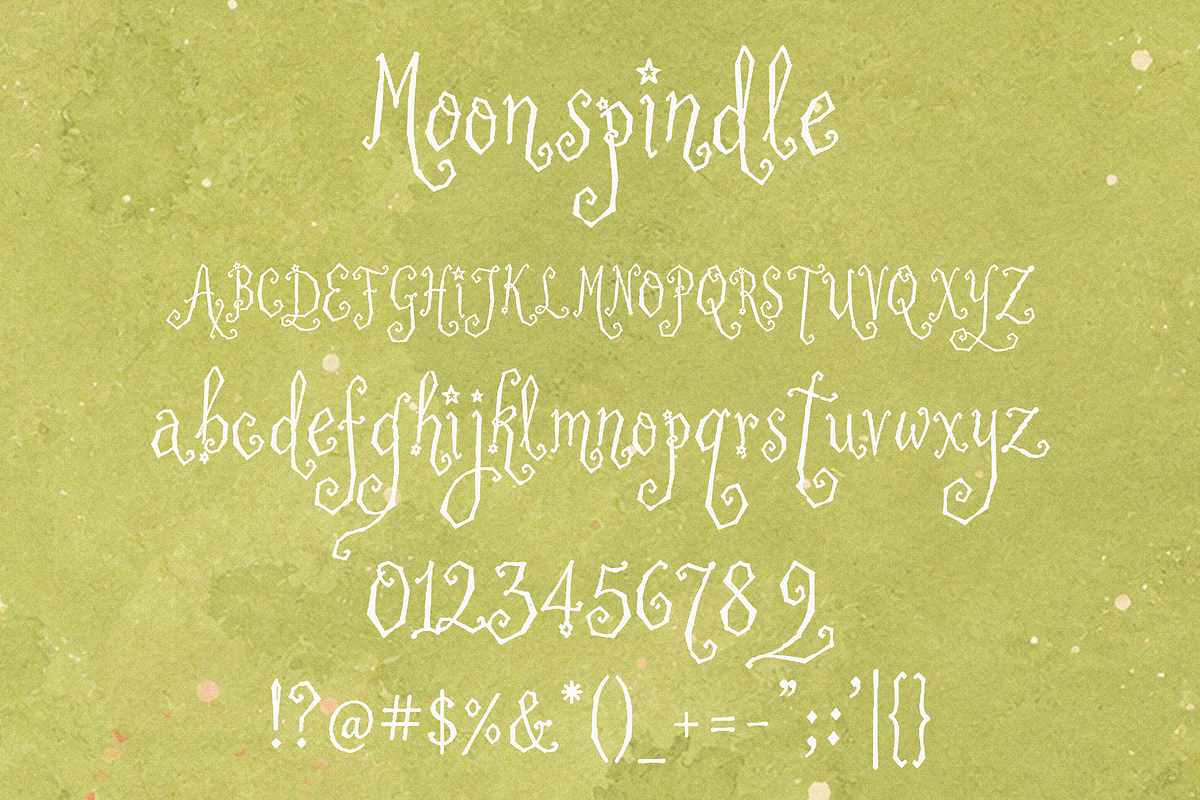 Moonspindle
ABCDEFGHIJKLMNOPQRSTUVQXYZ
abcdefghijklmnopqrstuvwxyz
0123456789
!?@#$%&*()_+=-”;:’|{}